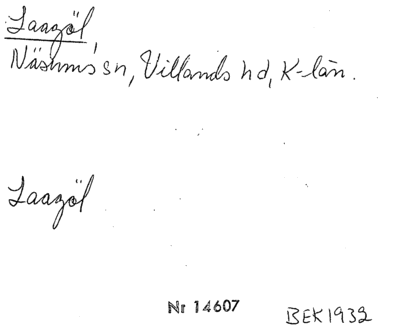 Laagöl,
Näsums sn, Villands hd, K-län.
Laagöl
Nr 14607
BEK 1932